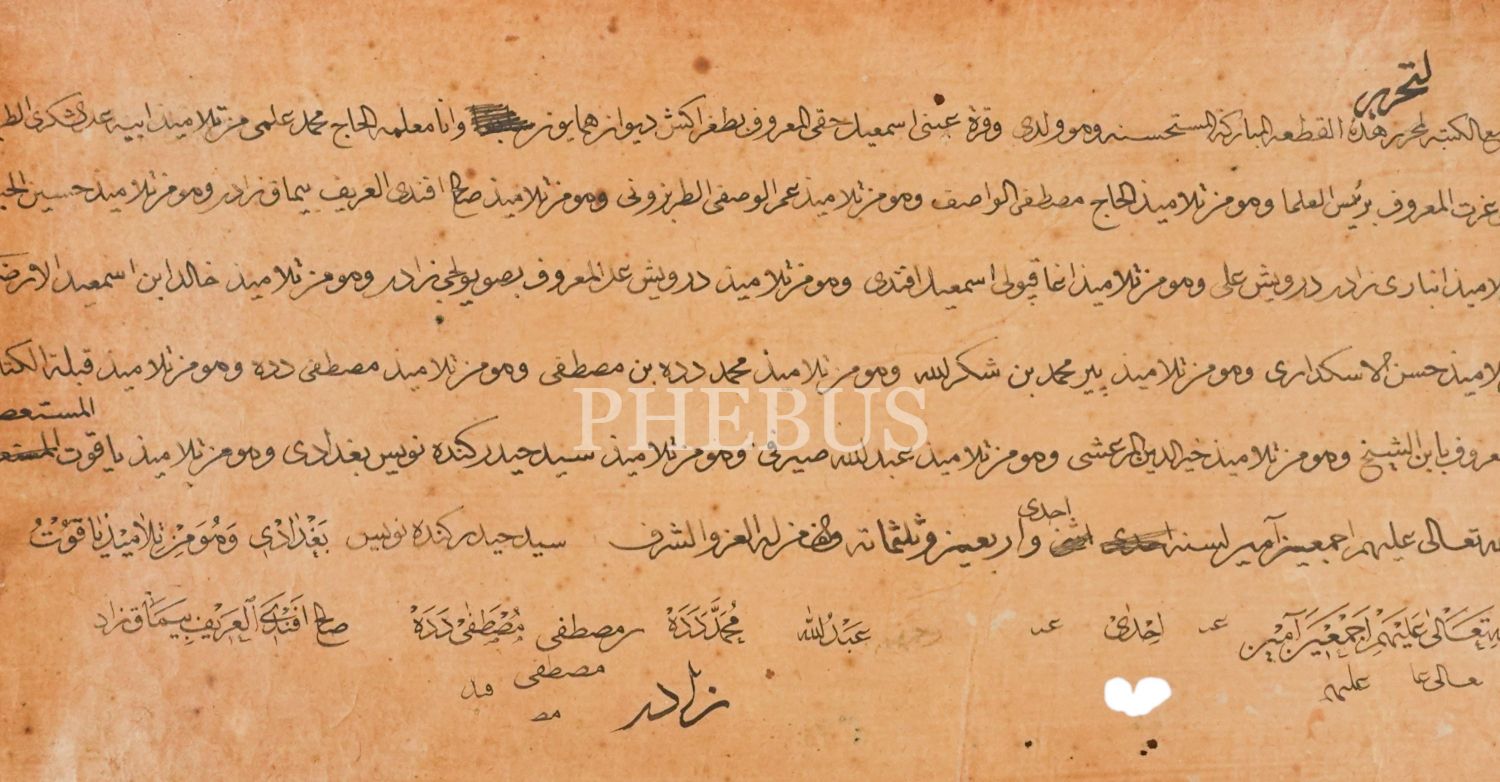 لتحرير
وضع الكتبه لمحرر هذه القطعه المباركة المستحسنه وهو ولدى وقرة عينى اسمعيل حقى المعروف بطغراكش ديوان همايون وانا معلمه الحاج محمد علمى من تلاميذ ابيه
عزت المعروف برئيس العلما وهو من تلاميذ الحاج مصطفى الواصف وهو من تلاميذ عمر الوصفى الطربزونى وهو من تلاميذ صالح افندى العريف بيماق زاده وهو من تلاميذ حسين
تلاميذ انبارى زاده درويش على وهو من تلاميذ اغا قپولى اسمعيل افندى وهو من تلاميذ درويش على المعروف بصويولجى زاده وهو من تلاميذ خالد ابن اسمعيل
تلاميذ حسن الاسكدارى وهو من تلاميذ پير محمد بن شكر الله وهو من تلاميذ محمد دده بن مصطفى وهو من تلاميذ مصطفى دده وهو من تلاميذ قبلة
المستعص
PHEBUS
معروف بابن الشيخ وهو من تلاميذ خير الدين المرعشى وهو من تلاميذ عبد الله صيرفى وهو من تلاميذ سيد حيدر كنده نويس بغدادى وهو من تلاميذ ياقوت
احدى
تعالى عليهم اجمعين آمين لسنه احدى اثنى واربعين وثلثمائه والف من له العز والشرف سيد حيدر كنده نويس بَغْدَادْى وَهُوَ مِنْ تِلَامِيْذِ يَاقُوْتُ
تَعَالٰى عَلَيْهِمْ اَجْمَعِيْنَ آمِيْن عد اِحْدٰى عد عَبْدُ الله مُحَمَّدْ دَدَهْ بن مصطفى مُصْطَفٰى دَدَهْ صالح افَنْدِى العريف بيَمَاق زاده
عالى عا عليهم مصطفى
زاده مص